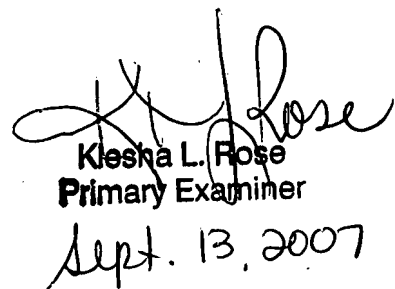 K L Rose
Kiesha L. Rose
Primary Examiner
Sept. 13, 2007